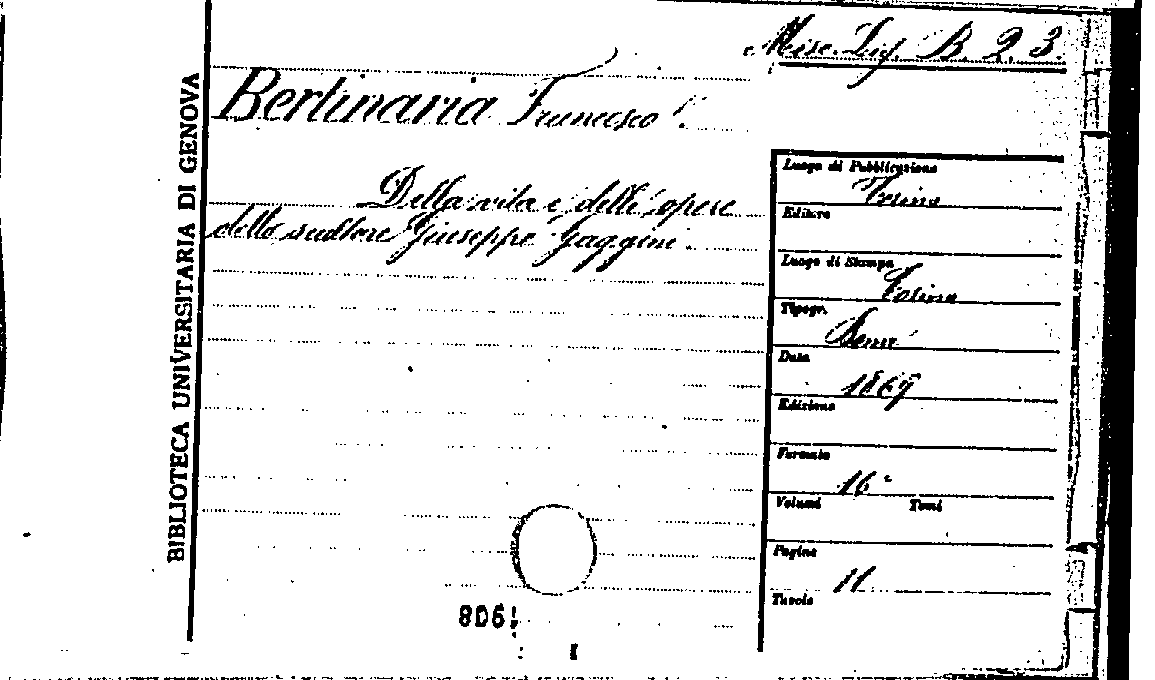 Misc. Lig. B. 2. 3.
Bertinaria Francesco.
Della vita e delle opere
dello scultore Giuseppe Gaggini.
BIBLIOTECA UNIVERSITARIA DI GENOVA
Luogo di Pubblicazione
Torino
Editore
Luogo di Stampa
Torino
Tipogr.
Data
1869
Edizione
Formato
16°
Volumi Tomi
Pagine
11
Tavole